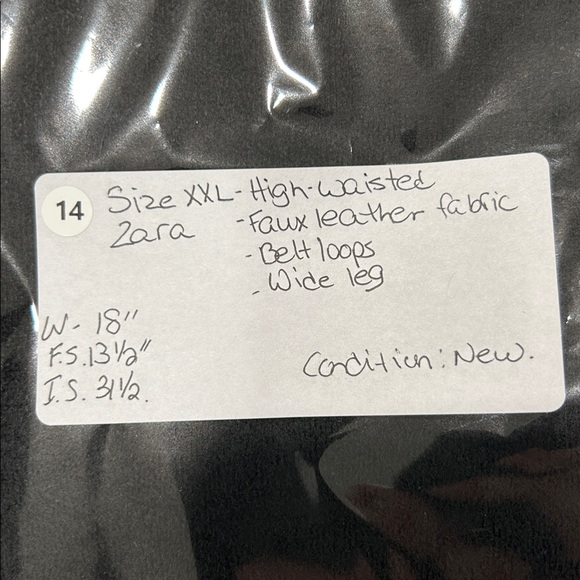 14
Size XXL - High-waisted
Zara - Faux leather fabric
- Belt loops
- Wide leg
W- 18"
F.S. 13 1/2"
I.S. 31 1/2.
Condition: New.